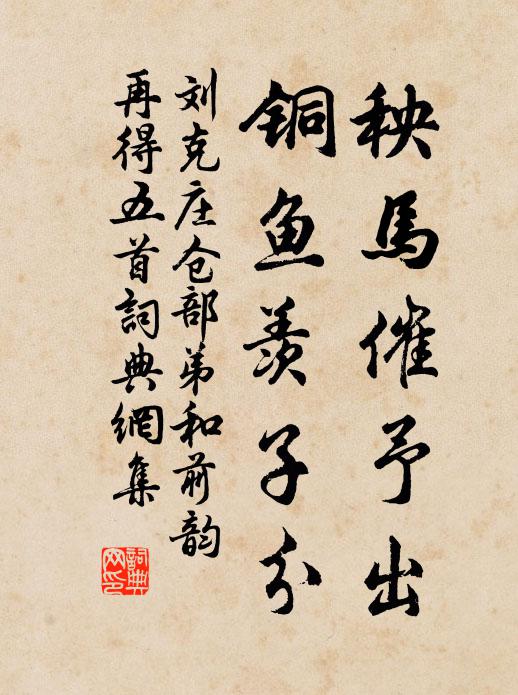 秧馬催予出
铜鱼羡子分
刘克庄仓部弟和前韵
再得五首詞典網集
詞典网印